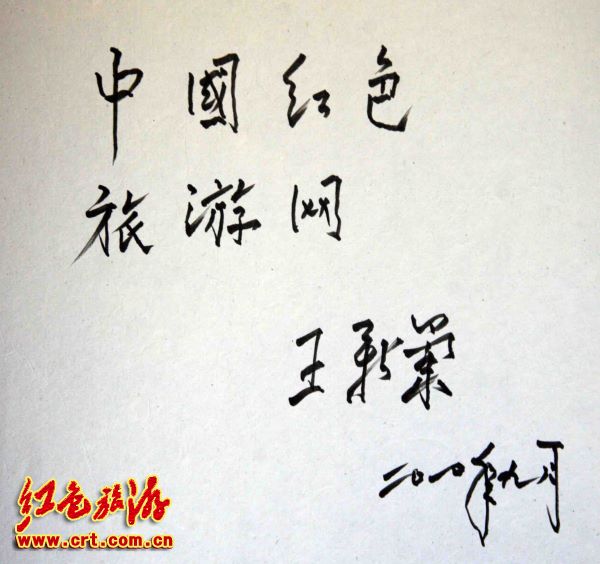 中國红色
旅游网
王
二〇一〇年九月
红色旅游
www.crt.com.cn